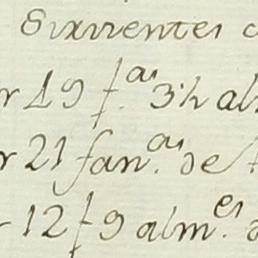 Sixvientes
19 f.as 3 ½ alm
21 fan.as de
12 f 9 alm.es